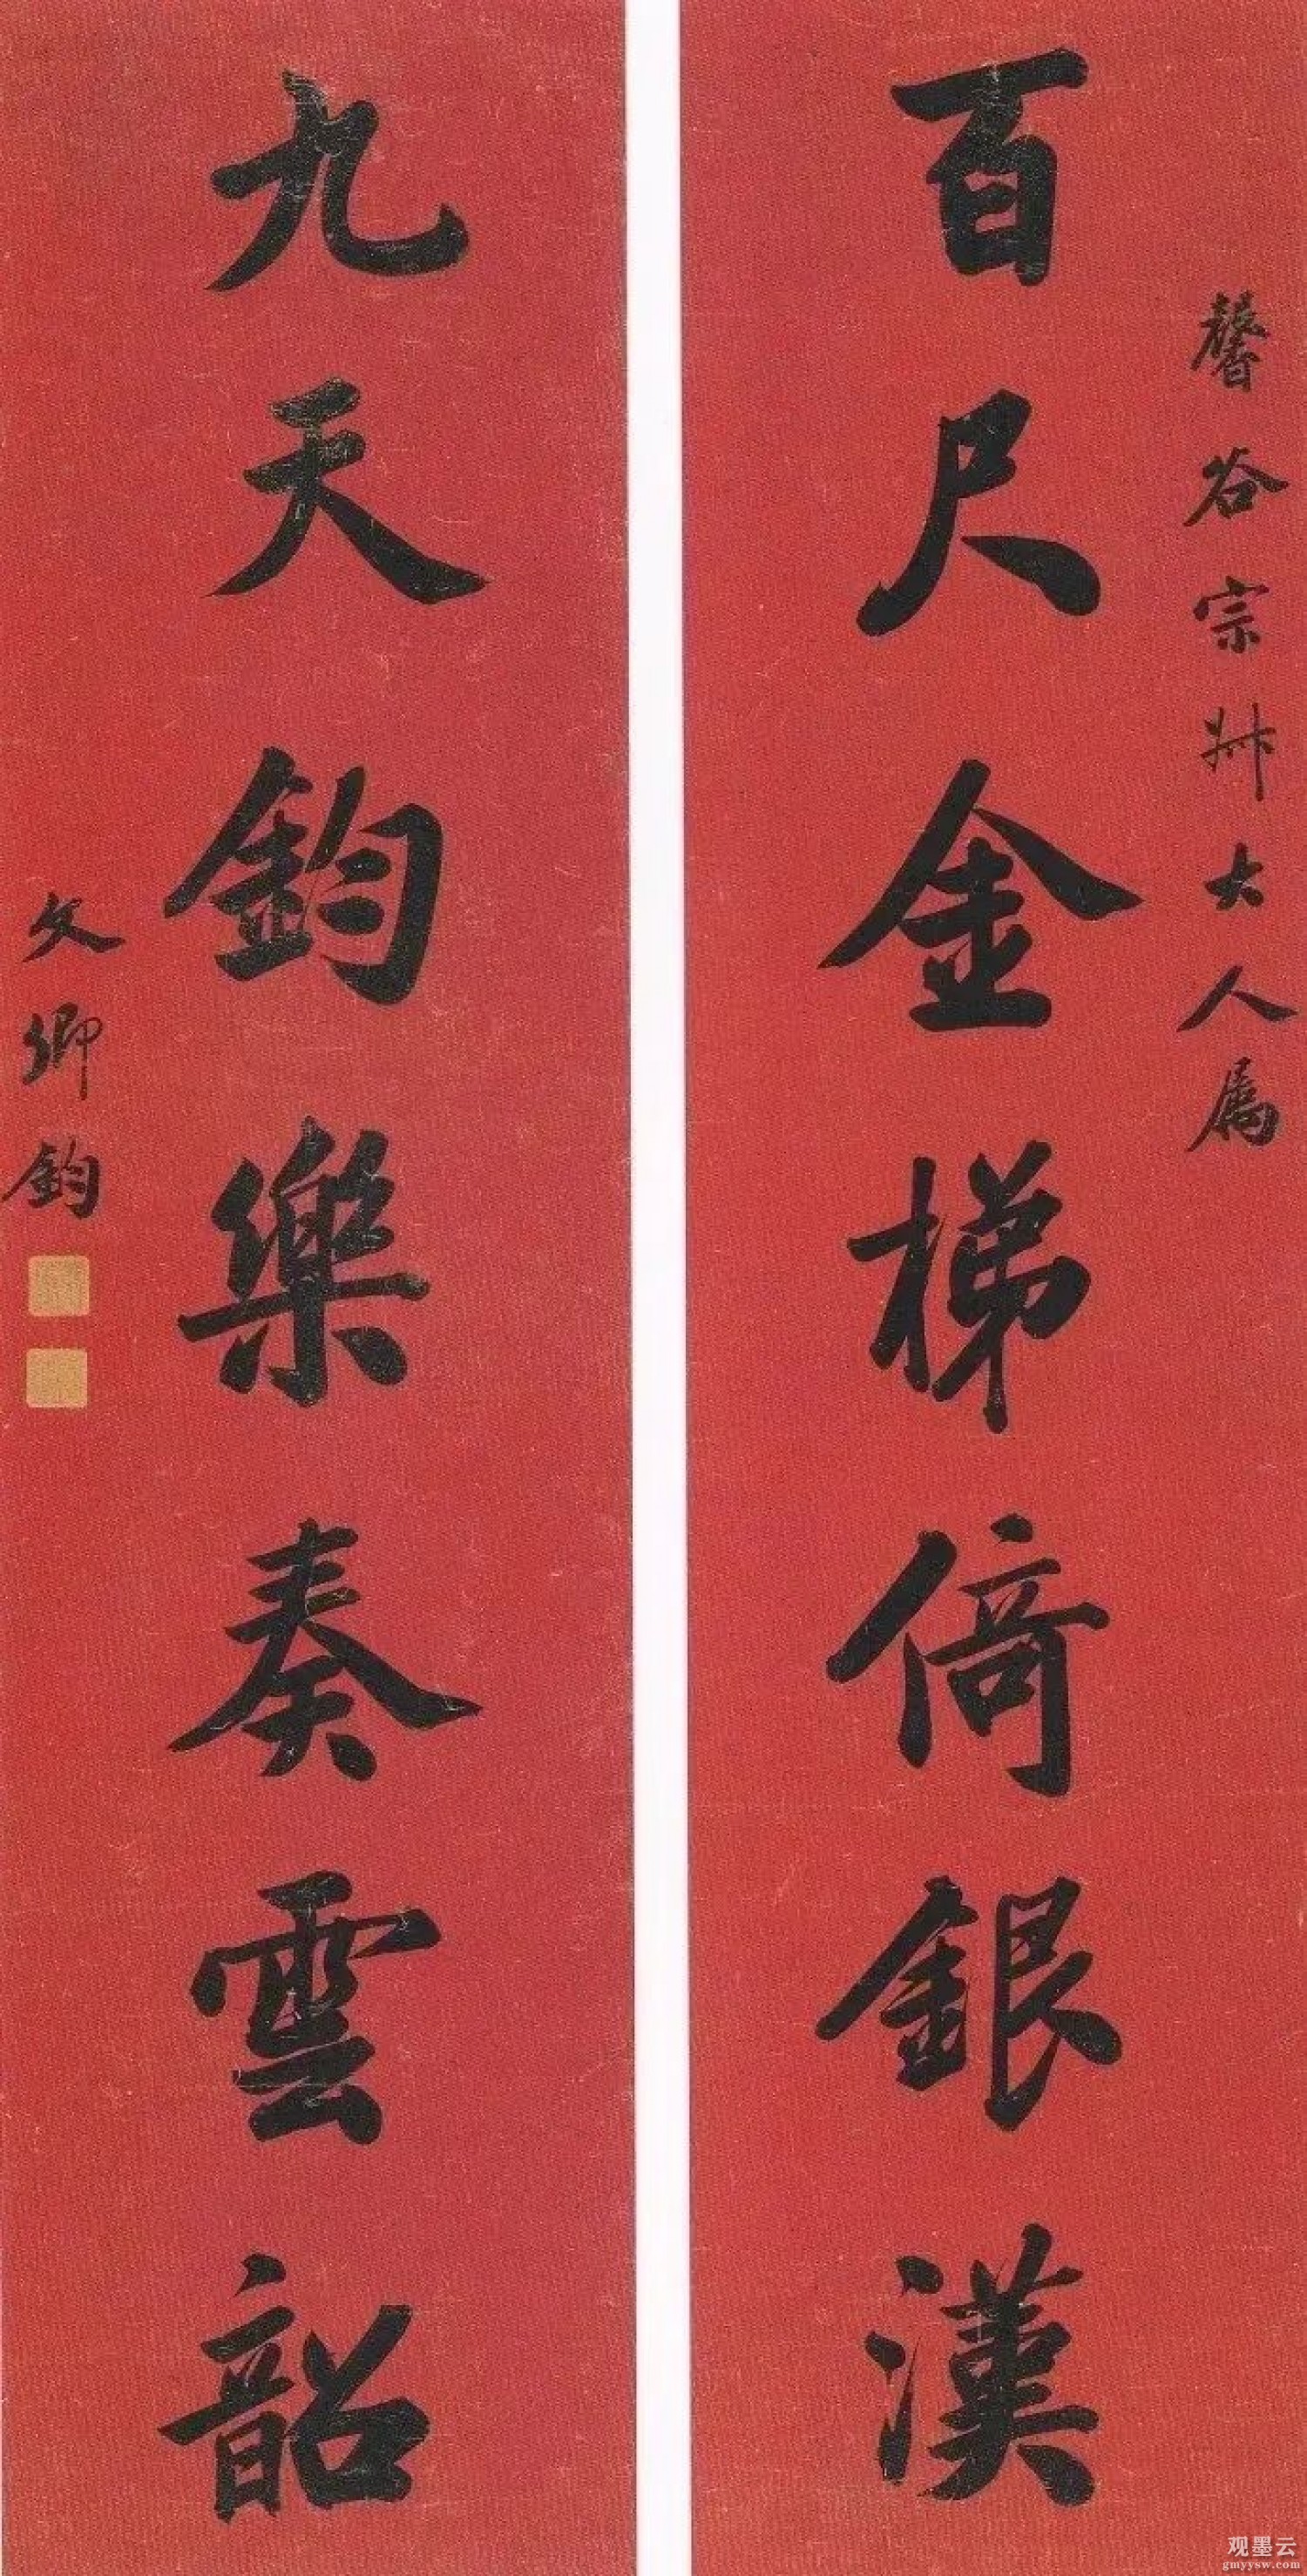 馨谷宗丼大人属
百尺金梯倚銀漢
九天鈞樂奏雲韶
文卿鈞
观墨云
gmyysw.com